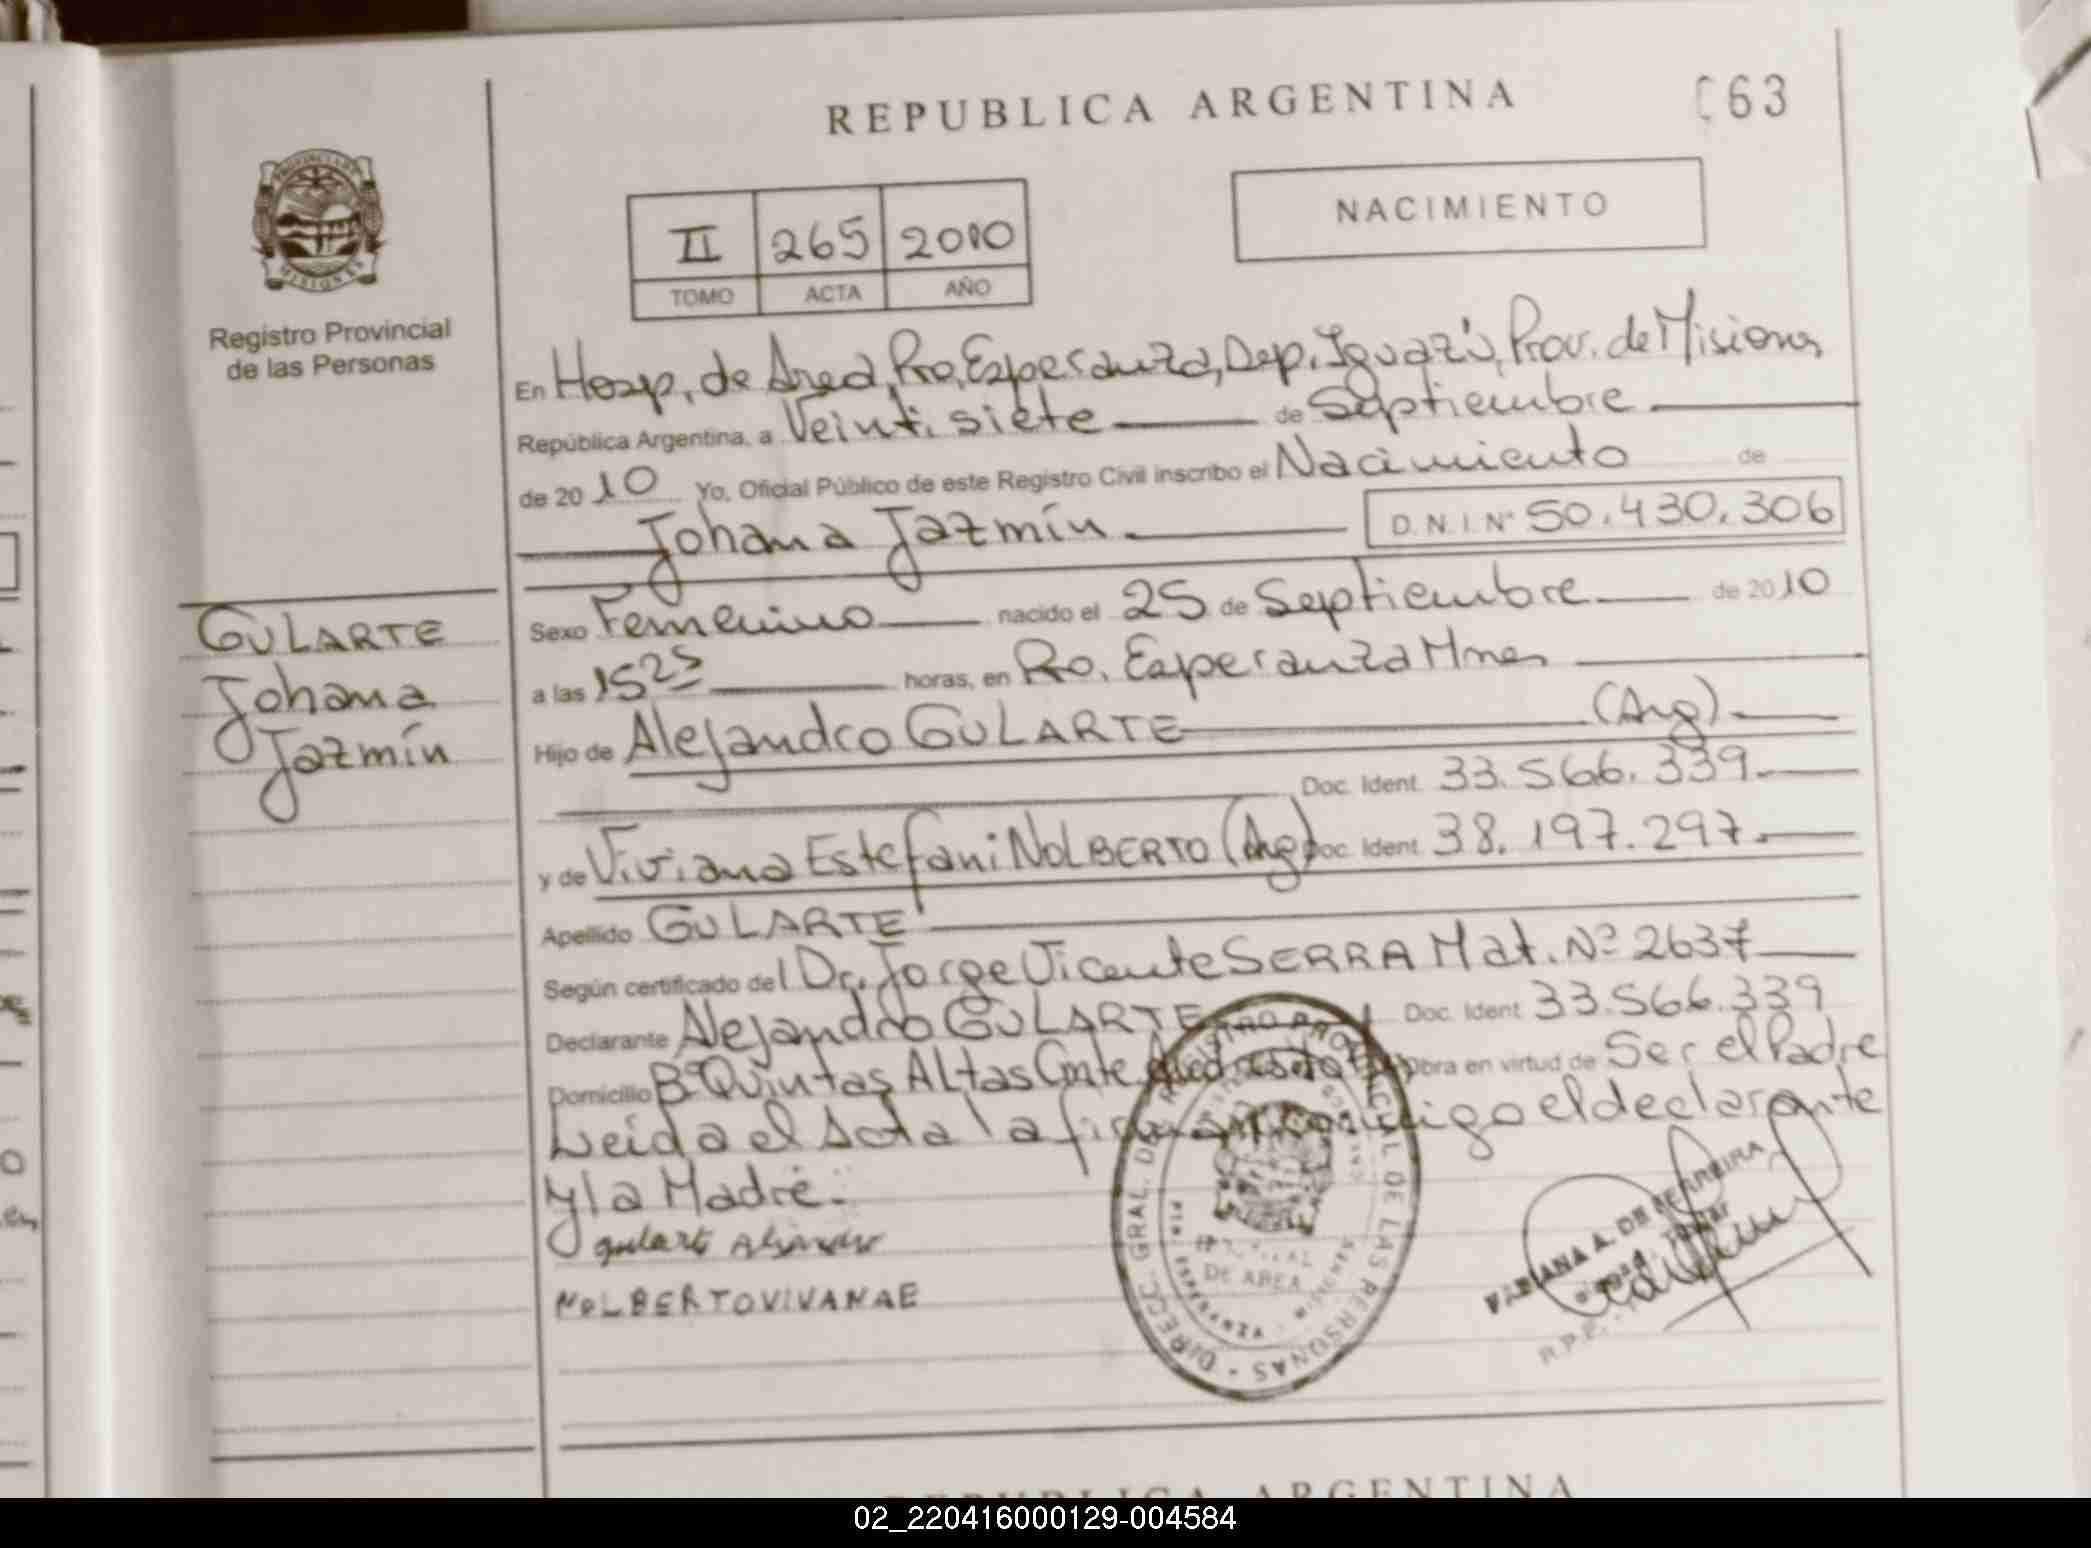 REPUBLICA ARGENTINA
63
NACIMIENTO
II 265 2010
TOMO ACTA AÑO
PROVINCIA DE
MISIONES
Registro Provincial
de las Personas
En Hosp. de Area, Pto. Esperanza, Dep. Iguazú, Prov. de Misiones
República Argentina, a Veintisiete de Septiembre
de 2010 Yo, Oficial Público de este Registro Civil inscribo el Nacimiento de
Johana Jazmín. D.N.I.Nº 50.430.306
GULARTE
Johana
Jazmín
Sexo Femenino nacido el 25 de Septiembre de 2010
a las 15 25 horas, en Pto. Esperanza Mnes
Hijo de Alejandro GULARTE (Arg).
Doc. Ident. 33.566.339.
y de Viviana Estefani NOLBERTO (Arg) Doc. Ident. 38.197.297.
Apellido GULARTE
Según certificado del Dr. Jorge Vicente SERRA Mat. Nº 2637
Declarante Alejandro GULARTE Doc. Ident. 33.566.339
Domicilio Bº Quintas ALtas Cnte Obra en virtud de Ser el Padre
Leída el Acta la firman conmigo el declarante
y la Madre.
gularte Alejandro
NOLBERTOVIVANAE
DIRECC. GRAL. DEL REGISTRO PROVINCIAL DE LAS PERSONAS
DE AREA
PTO. ESPERANZA
MISIONES
FABIANA A. DE FERREIRA
R.P.P.
REPUBLICA ARGENTINA
02_220416000129-004584